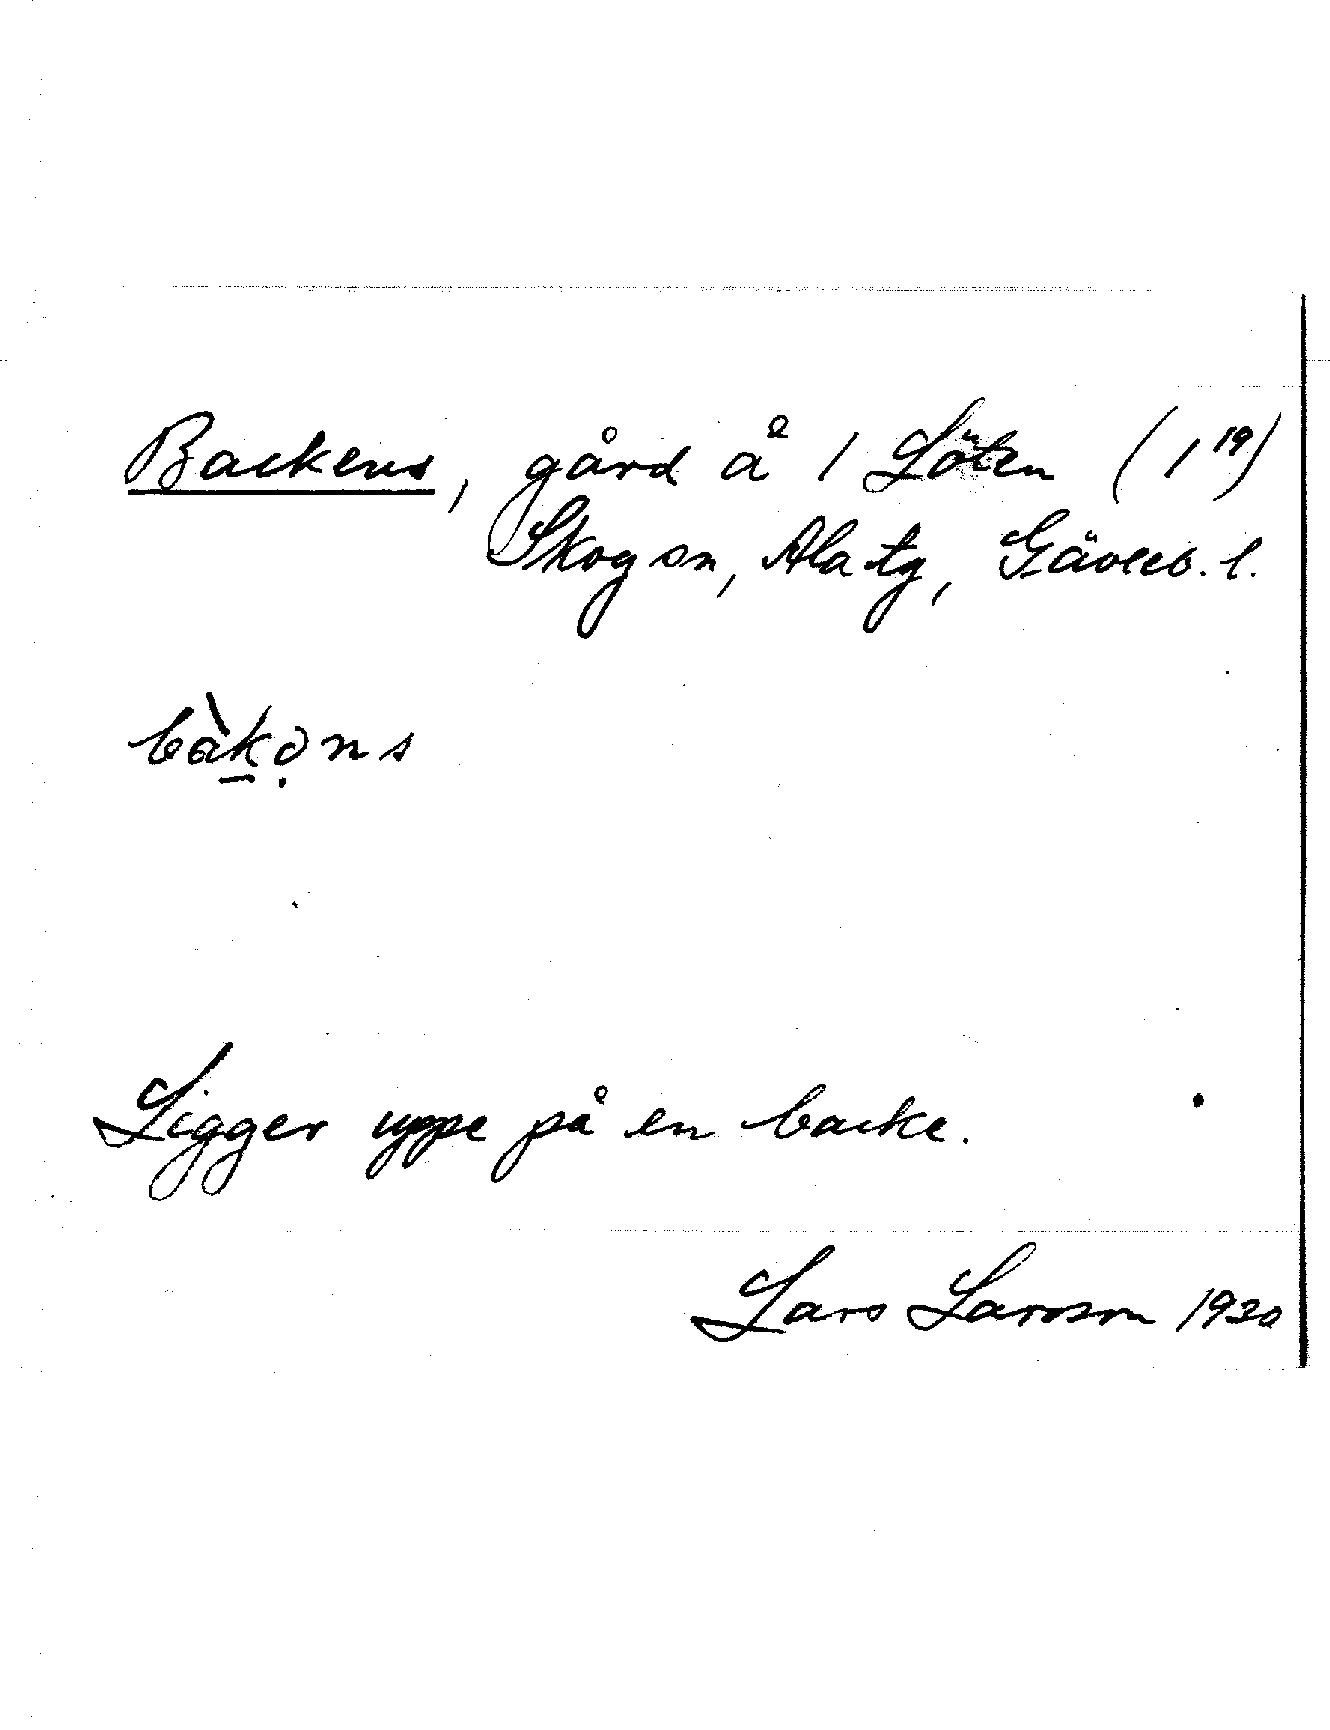 Backens, gård å 1 Löten (1¹⁹)
Skog sn, Ala tg, Gävleb. l.
bàk̠ə̣ns
Ligger uppe på en backe.
Lars Larsson 1930